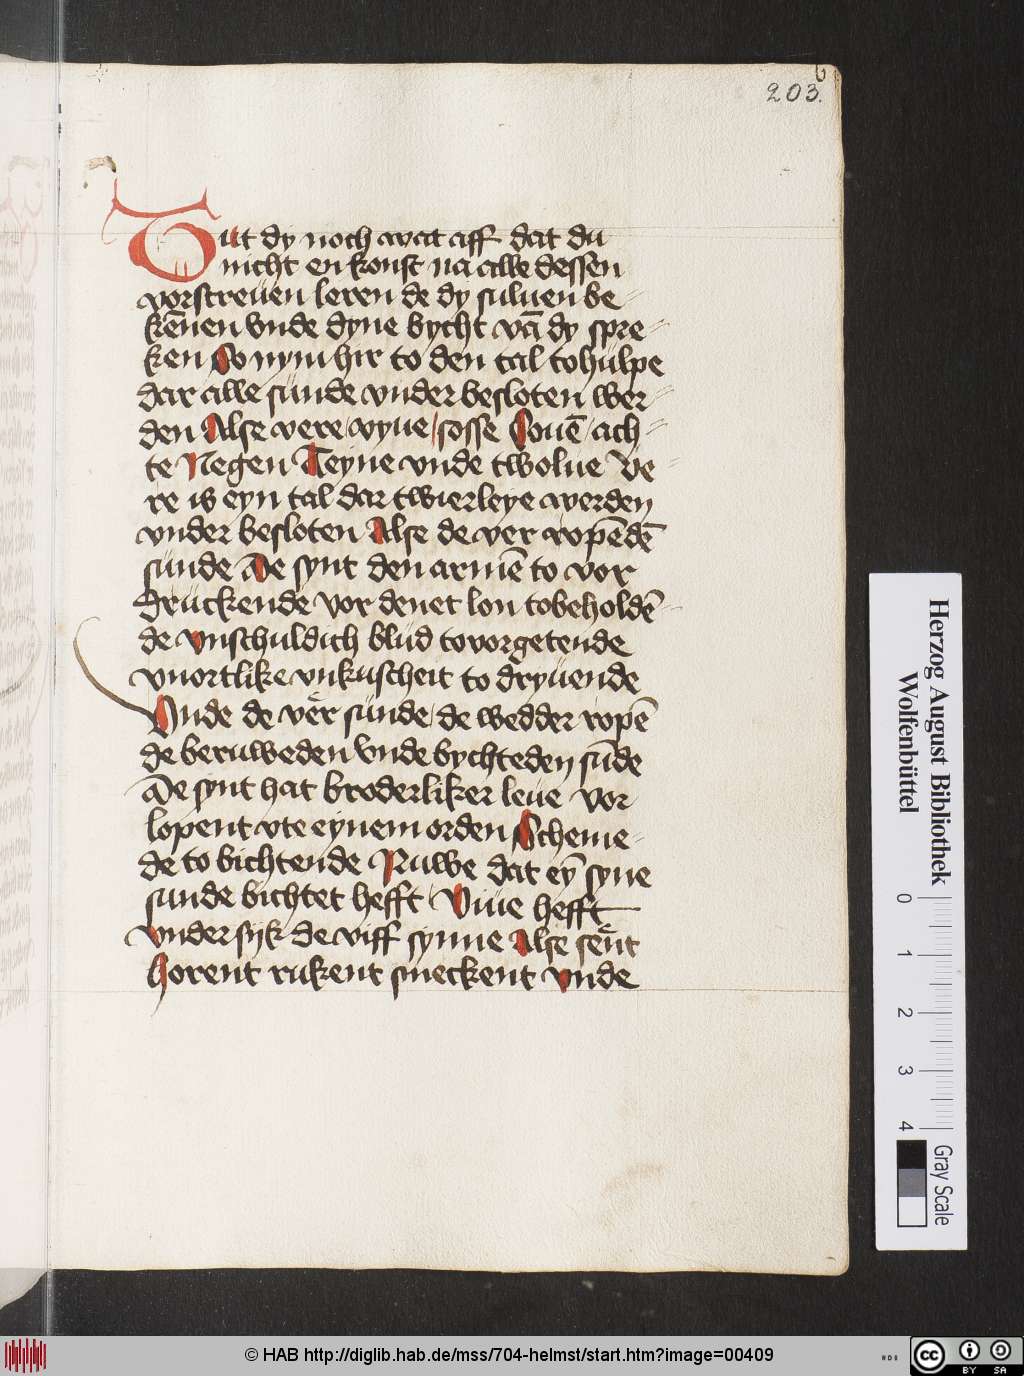 203.
Tut dy noch wat aff dat du
nicht en konst na alle dessen
vorstreuen leren de dy suluen be-
kēnen vnde dyne bycht vā dy spre-
ken So nym hir to den tal to hulpe
dar alle sunde vnder besloten wer-
den Alse vere vyue sosse Souē ach-
te Negen Teyne vnde twolue Ve
re is eyn tal dar twierleye werden
vnder besloten Alse de ver ropēdē
sunde De synt den armē to vor
druckende vor denet lon to beholdē
de vnschuldich blud to vorgetende
vnortlike vnkuscheit to dryuende
Vnde de ver sunde de wedder ropē
de beruweden vnde bychteden sūde
De synt hat broderliker leue vor
lopent vte eynem orden Scheme-
de to bichtende Ruwe dat eȳ syne
sunde bichtet hefft Viue hefft
vnder sijk de viff synne Alse sent
horent rukent smeckent vnde
Herzog August Bibliothek
Wolfenbüttel
0 1 2 3 4
Gray Scale
© HAB http://diglib.hab.de/mss/704-helmst/start.htm?image=00409
cc BY SA